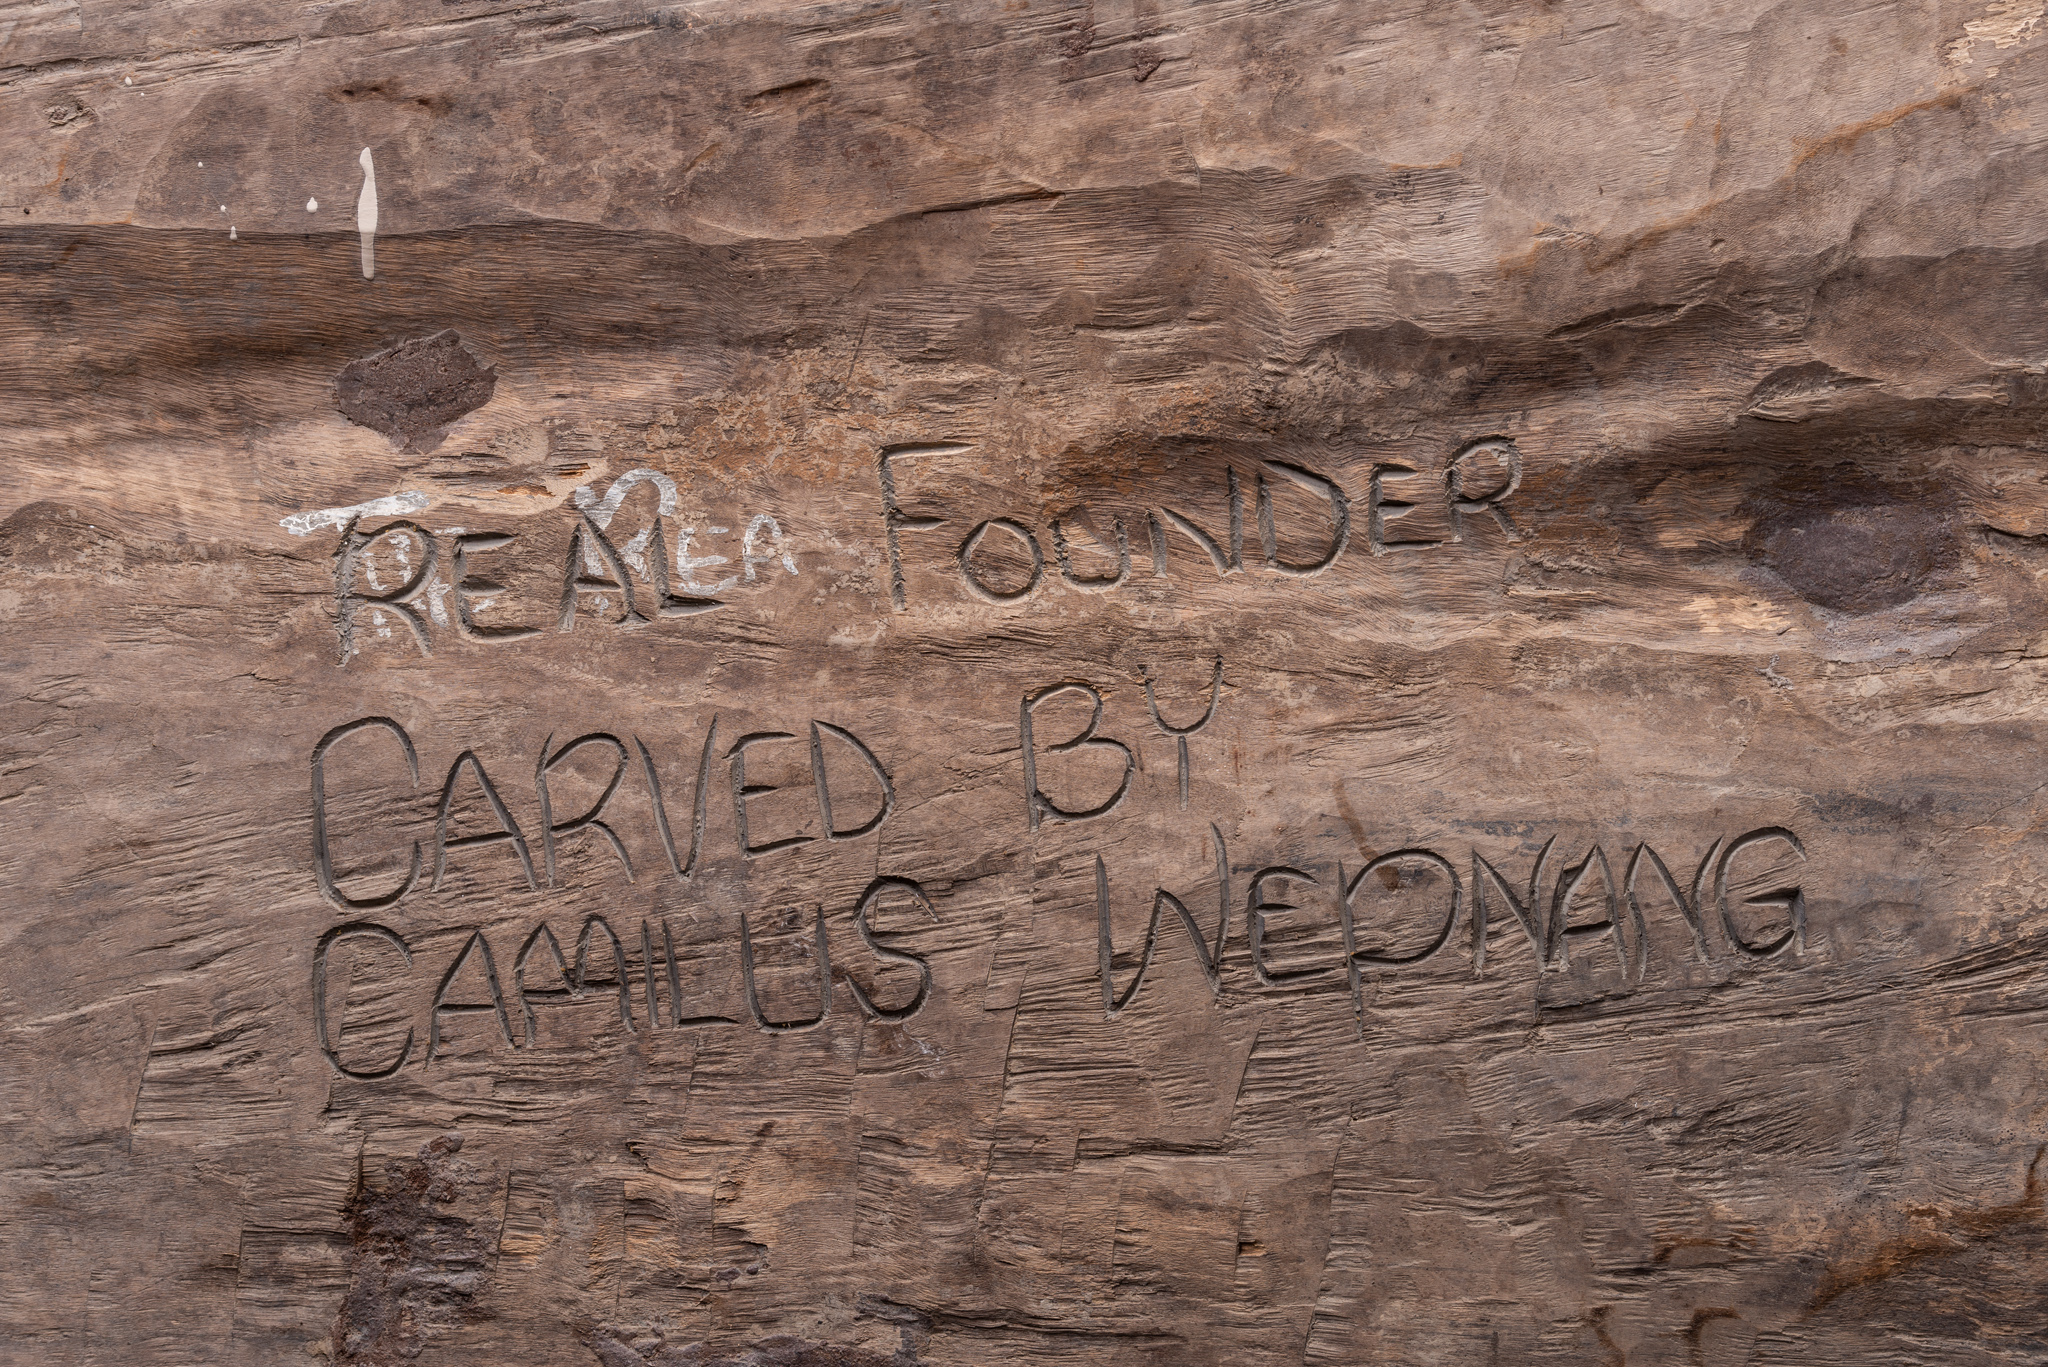 REAL FOUNDER
CARVED BY
CAMILUS WEPNANG